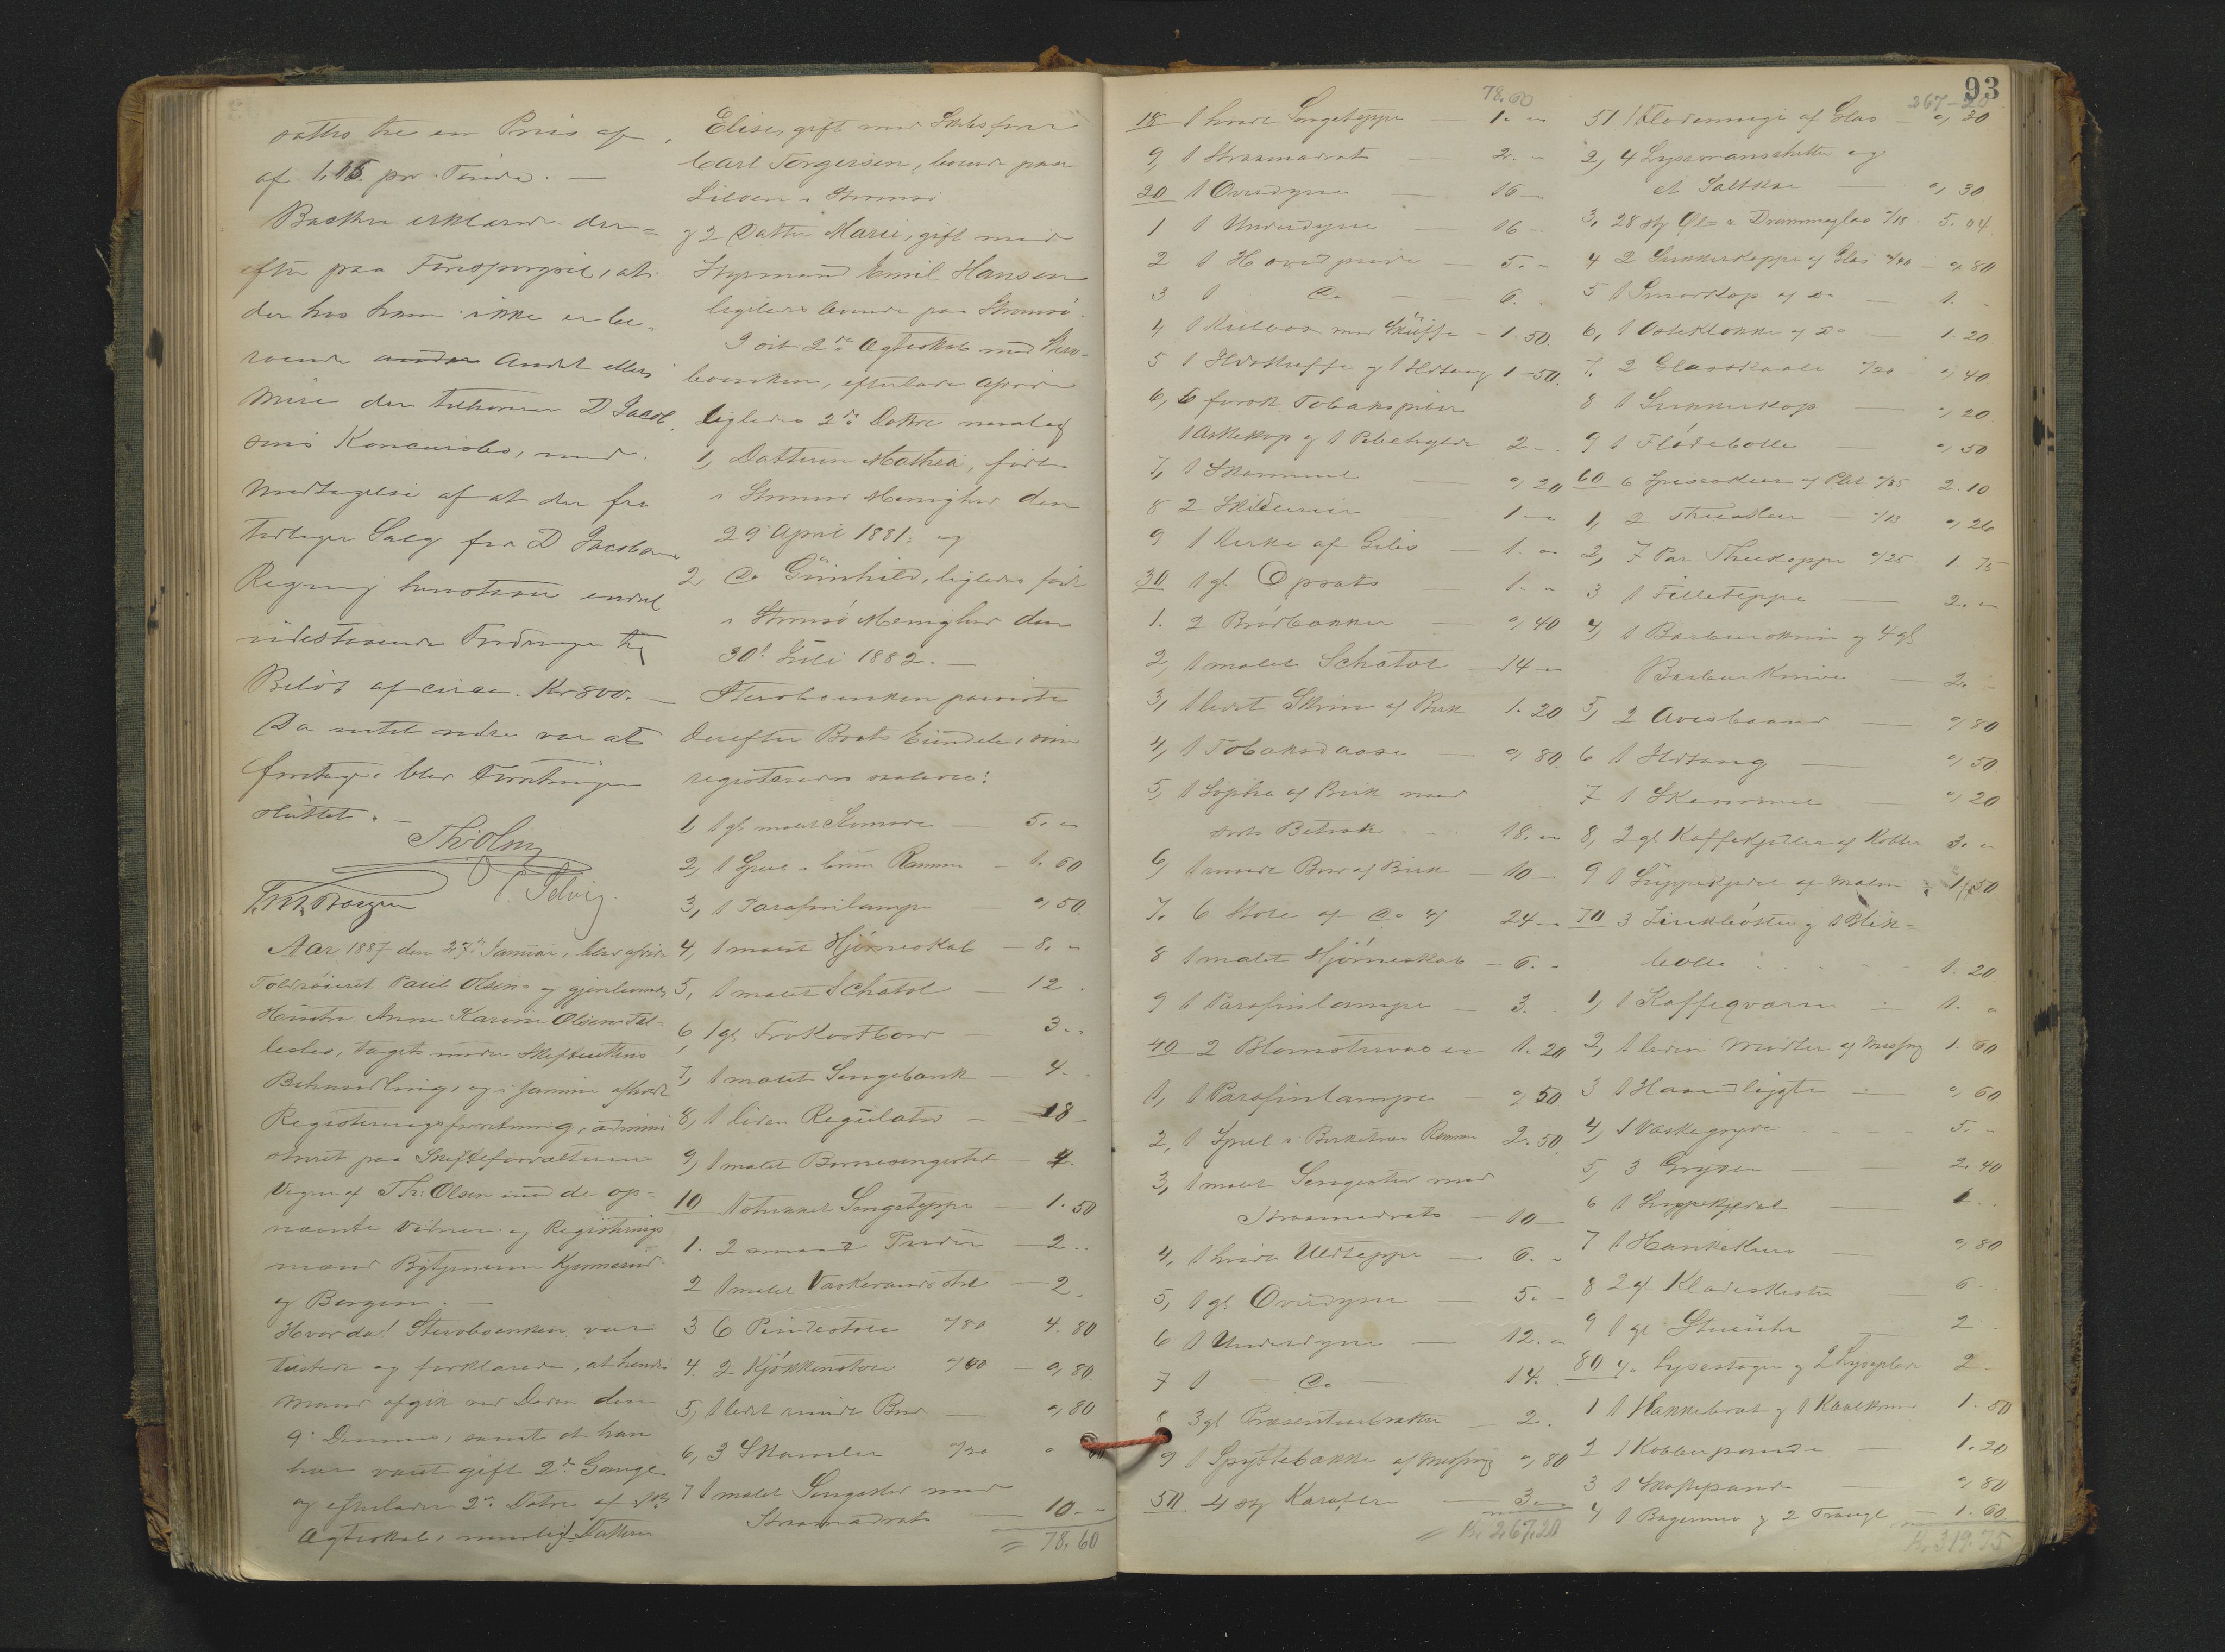 sattes til en Pris af
af 1,15 pr. Tønde. —
Backen erklærede der=
efter paa Forespørgsel, at
der hos ham ikke er be-
roende andet eller
mere der tilhører D Jacob
sens Koncursbo, med
Undtagelse af at der fra
tidligere Salg for D Jacobsens
Regning henstaar endel
udestaaende Fordringer til
Beløb af circa Kr 800. —
Da intet videre var at
foretage blev Forretningen
sluttet. —
Th: Olsen
Aar 1887 den 27de Januar, blev afdøde
Toldrøiert Paul Olsen og gjenlevende
Hustru Anne Karine Olsens Fæl-
lesbo, taget under Skifterettens
Behandling, og i samme afholdt
Registreringsforretning, admini
streret paa Skifteforvalterens
Vegne af Th: Olsen med de op=
nævnte Vidner og Registrerings
mænd Bytjenerne Kjennerud
og Borgen. —
Hvorda! Sterboenken var
tilstede og forklarede, at hendes
Mand afgik ved Døden den
9de Dennes, samt at han
har været gift 2de Gange
og efterlader 2de Døtre af 1ste
Ægteskab, nemlig 1) Datteren
Elise, gift med Skibsfører
Carl Torgersen, boende paa
Lilleøen i Strømsø
og 2 Datter Marie, gift med
Styrmand Emil Hansen
ligeledes boende paa Strømsø.
I sit 2de Ægteskab med Stervboenken, efterlader Afdøde
ligeledes 2de Døtre nemlig
1, Datteren Mathea, født
i Strømsø Menighed den
29 April 1881: og
2 Do Gunhild, ligeledes født
i Strømsø Menighed den
30! Juli 1882. —
Stervboenken paaviste
derefter Boets Eiendele, som
registreredes saaledes:
1, 1 gl. malet Komode — 5. "
2, 1 Speil i brun Ramme — 1. 60
3, 1 Parafinlampe — " 50.
4, 1 malet Hjørneskab — 8. "
5, 1 malet Schatol — 12.
6, 1 gl Frokostbord — 3. "
7, 1 malet Sengebænk — 4. -
8, 1 liden Regulator — 18 -
9, 1 malet Børnesengested — 4.
10 1 strikket Sengeteppe — 1. 50
1. 2 smaa Puder — 2..
2 1 malet Vaskevandsstol — 2.
3 6 Pindestole " 80 4. 80
4. 2 Kjøkkenstole " 40 — " 80.
5, 1 lidet rundt Bord — " 80
6, 3 Skamler " 20 " 60
7 1 malet Sengested med
Straamadrats — 10 -
= 78,60
78.60
18 1 hvidt Sengeteppe — 1. "
9, 1 Straamadrats — 2. -
20 1 Overdyne — 16 -
1 1 Underdyne — 16 -
2 1 Hovedpude — 5. -
3 1 Do — 6. .
4 1 Kulbox med Skuffe — 1. 50.
5 1 Ildskuffe og 1 Ildtang 1 - 50.
6, 6 forsk. Tobakspiber
1 Askekop og 1 Pibehylde 2 - .
7, 1 Skammel — " 20
8 2 Skilderier — 1 - "
9 1 Kirke af Gibs — 1. "
30 1 gl Opsats — 1. "
1. 2 Brødbakker — " 40
2, 1 malet Schatol — 14 -
3, 1 lidet Skrin af Birk 1. 20
4, 1 Tobaksdaase — " 80.
5, 1 Sopha af Birk med
sort Betræk . . 18. "
6, 1 rundt Bord af Birk — 10 -
7. 6 Stole af Do 4/ 24 -
8 1 malet Hjørneskab — 6. "
9 1 Parafinlampe — 3. .
40 2 Blomstervaser 1. 20
1, 1 Parafinlampe — " 50
2, 1 Speil i Birketræs Ramme 2. 50.
3, 1 malet Sengested med
Straamadrats — 10 —
4, 1 hvidt Uldteppe — 6. "
5, 1 gl Overdyne — 5. -
6 1 Underdyne — 12. "
7 1 — Do — 14.
8 3 gl Præsenterbrætter — 2.
9 1 Spyttebakke af Messing " 80
50 4 stk Karafler — 3. "
= Kr 267.20
93
267-20
51 1 Flødemugge af Glas — " 30
2, 4 Lysemanschetter og
et Saltkar — " 30
3, 28 stk Øl- & Dramméglas "/18 5. 04
4 2 Sukkerkopper af Glas "/40 — " 80
5 1 Smørkop af do — 1. -
6, 1 Osteklokke af do — 1. 20
7. 2 Glasskaale "/20 — " 40
8 1 Sukkerkop — " 20.
9 1 Flødebolle — " 50
60 6 Spiseskeer af Plet "/35 2. 10
1, 2 Theeskeer — "/13 " 26
2, 7 Par Theekopper "/25 1. 75
3 1 Filleteppe — 2. "
4, 1 Barbeerskrin og 4 gl
Barbeerknive — 2. -
5, 2 Avisbaand — " 80
6 1 Ildtang — " 50.
7 1 Skammel — " 20
8, 2 gl Kaffekjedler af Kobber 3. "
9 1 Suppekjedel af Malm 1, 50
70 3 Zinkbøtter og 1 Blik=
bolle . . . . 1. 20
1, 1 Kaffeqværn — 1. "
2, 1 liden Morter af Messing 1. 60
3 1 Haandlygte — " 60
4, 1 Vaskegryde . . . . 5. "
5, 3 Gryder — 2. 40
6 1 Suppekjedel — 1. .
7 1 Hankekurv — " 80
8 2 gl Klædeskister — 6
9 1 gl Stueuhr — 2.
80 4 Lysestager og 2 Lyseplader 2 -
1 1 Hakkebræt og 1 Kaalkniv 1. 50
2 1 Kobberpande 1. 20
3 1 Skaftepande " 80
4 1 Bagerovn og 2 Traug 1. 60
Kr 319.75